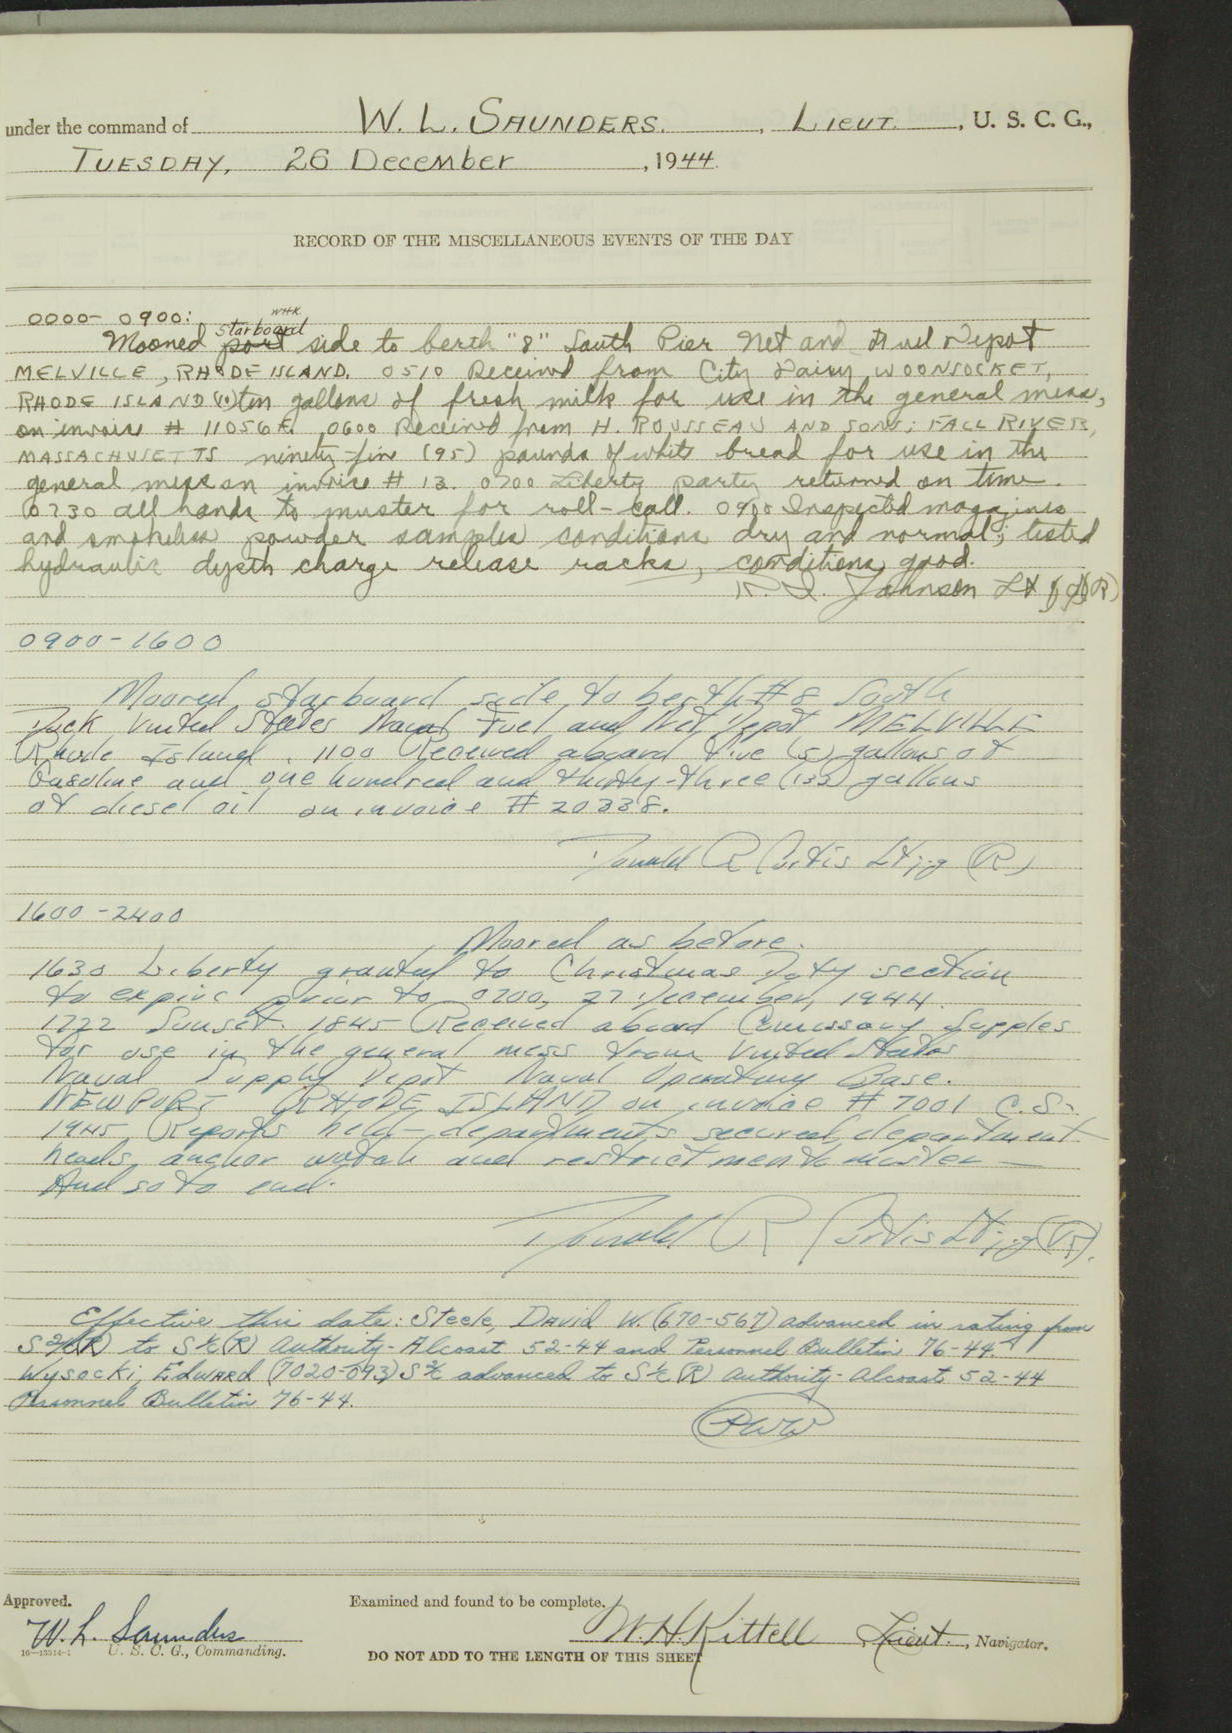 under the command of W. L. SAUNDERS. , LIEUT. , U. S. C. G.,
TUESDAY, 26 December , 1944.
RECORD OF THE MISCELLANEOUS EVENTS OF THE DAY
0000- 0900:
WHK
starboard
Moored port side to berth "8" South Pier Net and Fuel Depot
MELVILLE, RHODE ISLAND. 0510 Received from City Dairy, WOONSOCKET,
RHODE ISLAND (10) ten gallons of fresh milk for use in the general mess,
on invoice # 11056F. 0600 Received from H. ROUSSEAU AND SONS; FALL RIVER,
MASSACHUSETTS ninety-five (95) pounds of white bread for use in the
general mess on invoice # 13. 0700 Liberty party returned on time.
0730 all hands to muster for roll-call. 0900 Inspected magazines
and smokeless powder samples conditions dry and normal; tested
hydraulic depth charge release racks, conditions good.
Johnson Lt jg (R)
0900-1600
Moored starboard side to berth #8 South
Dock United States Naval Fuel and Net Depot MELVILLE
Rhode Island. 1100 Received aboard five (5) gallons of
Gasoline and one hundred and thirty-three (133) gallons
of diesel oil on invoice # 20338.
Donald R Curtis Lt,jg (R)
1600-2400
Moored as before.
1630 Liberty granted to Christmas Duty section
to expire prior to 0700, 27 December, 1944.
1722 Sunset. 1845 Received aboard Comissary Supples
for use in the general mess from United States
Naval Supply Depot Naval Operating Base.
NEWPORT RHODE ISLAND on invoice # 7001 C.S.
1945 Reports held- departments secured, department
heads, anchor watch and restrictment muster —
And so to end.
Donald R Curtis Lt,jg (R).
Effective this date: Steele, David W. (670-567) advanced in rating from
S2/c(R) to S1/c(R) Authority- Alcoast 52-44 and Personnel Bulletin 76-44.
Wysocki, Edward (7020-093) S2/c advanced to S1/c (R) Authority- Alcoast 52-44
Personnel Bulletin 76-44.
Approved. Examined and found to be complete.
W. L. Saunders W. H. Kittell Lieut. , Navigator.
16—13514-1 U. S. C. G., Commanding.
DO NOT ADD TO THE LENGTH OF THIS SHEET